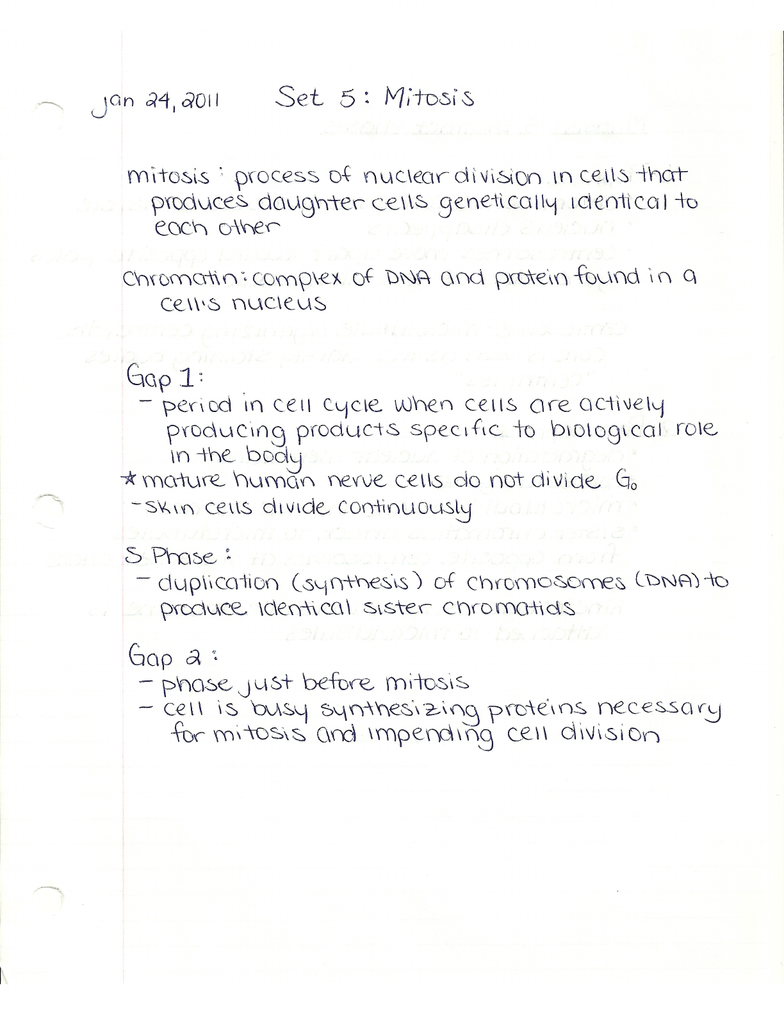 Jan 24, 2011 Set 5: Mitosis
mitosis: process of nuclear division in cells that
produces daughter cells genetically identical to
each other
Chromatin: complex of DNA and protein found in a
cell's nucleus
Gap 1:
- period in cell cycle when cells are actively
producing products specific to biological role
in the body
* mature human nerve cells do not divide G₀
- skin cells divide continuously
S Phase:
- duplication (synthesis) of chromosomes (DNA) to
produce identical sister chromatids
Gap 2:
- phase just before mitosis
- cell is busy synthesizing proteins necessary
for mitosis and impending cell division